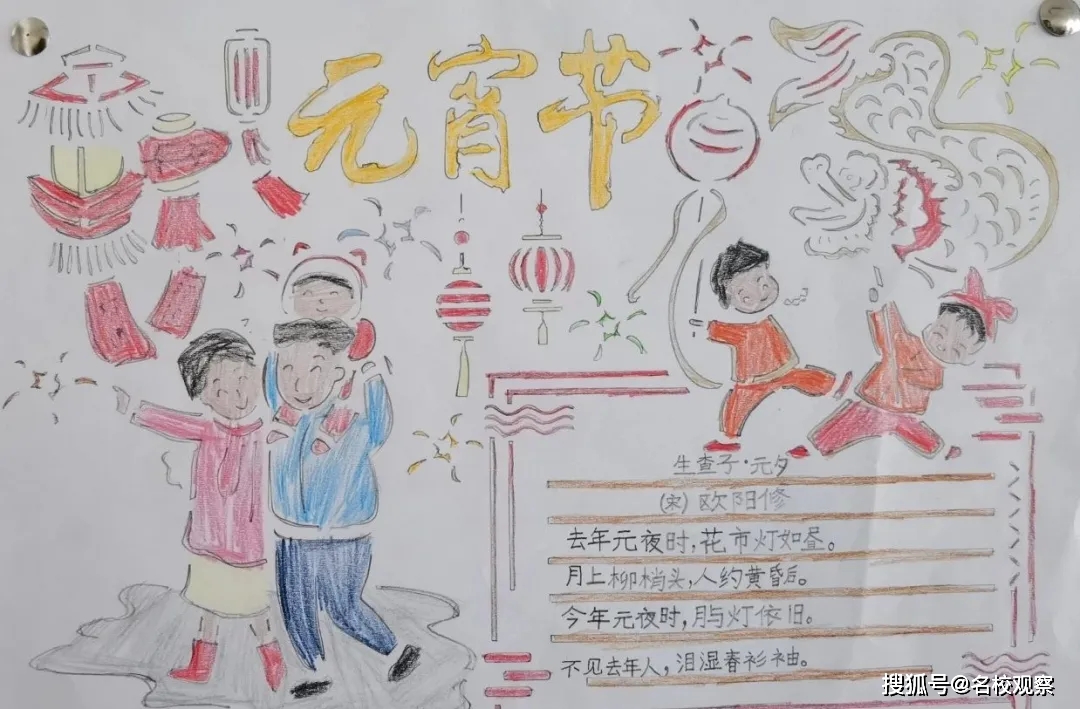 元宵节
生查子·元夕
(宋) 欧阳修
去年元夜时,花市灯如昼。
月上柳梢头,人约黄昏后。
今年元夜时,月与灯依旧。
不见去年人,泪湿春衫袖。
搜狐号@名校观察